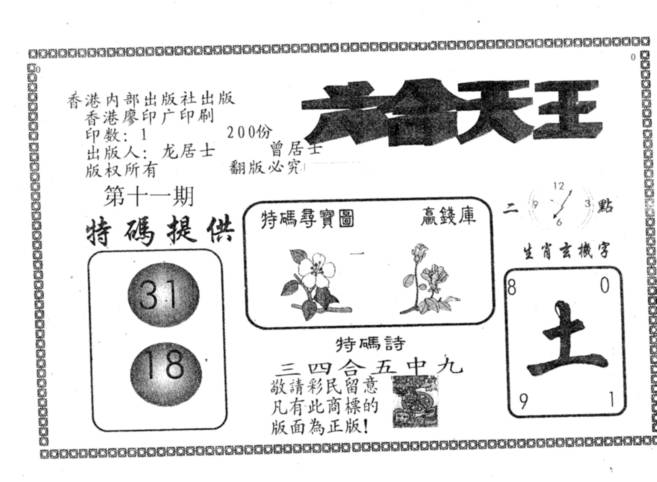 六合天王
香港内部出版社出版
香港廖印广印刷
印数：1 200份
出版人：龙居士 曾居士
版权所有 翻版必究
第十一期
特碼提供
31
18
特碼尋寶圖 贏錢庫
一
特碼詩
三四合五中九
敬請彩民留意
凡有此商標的
版面為正版！
二 12 9 3 6 點
生肖玄機字
8 0
土
9 1